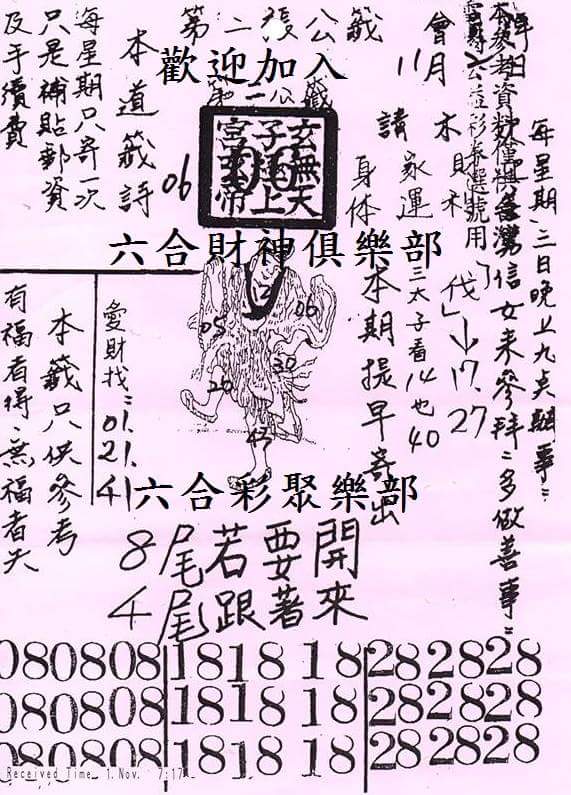 第二張公籤
歡迎加入
第二公籤
玄無天
子運上
宮弘帝
06
每星期三日晚上九点朝事:
信女来參拜:多做善事:
會
11月
請
木財神
家運
身体
伐」→17.27
三太子看14也40
本期提早寄出
本道籤詩
06
每星期只寄一次
只是補貼郵資
及手續費
六合財神俱樂部
愛財找:01.21.41
本籤只供參考
有福者得、無福者失
05
06
20
30
六合彩聚樂部
8尾若要開
4尾跟著來
080808 181818 282828
080808 181818 282828
080808 181818 282828
Received Time 1.Nov. 7:17